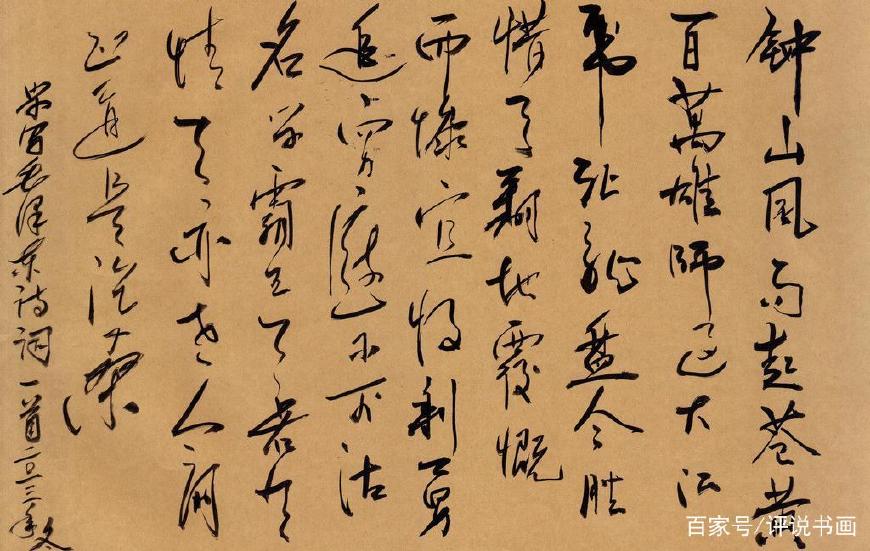 钟山风雨起苍黄
百萬雄师过大江
虎踞龙盘今胜
惜天翻地覆慨
而慷宜将剩勇
追穷寇不可沽
名学霸王天若有
情天亦老人间
正道是沧桑
写毛泽东诗词一首二〇一三年冬
百家号/评说书画